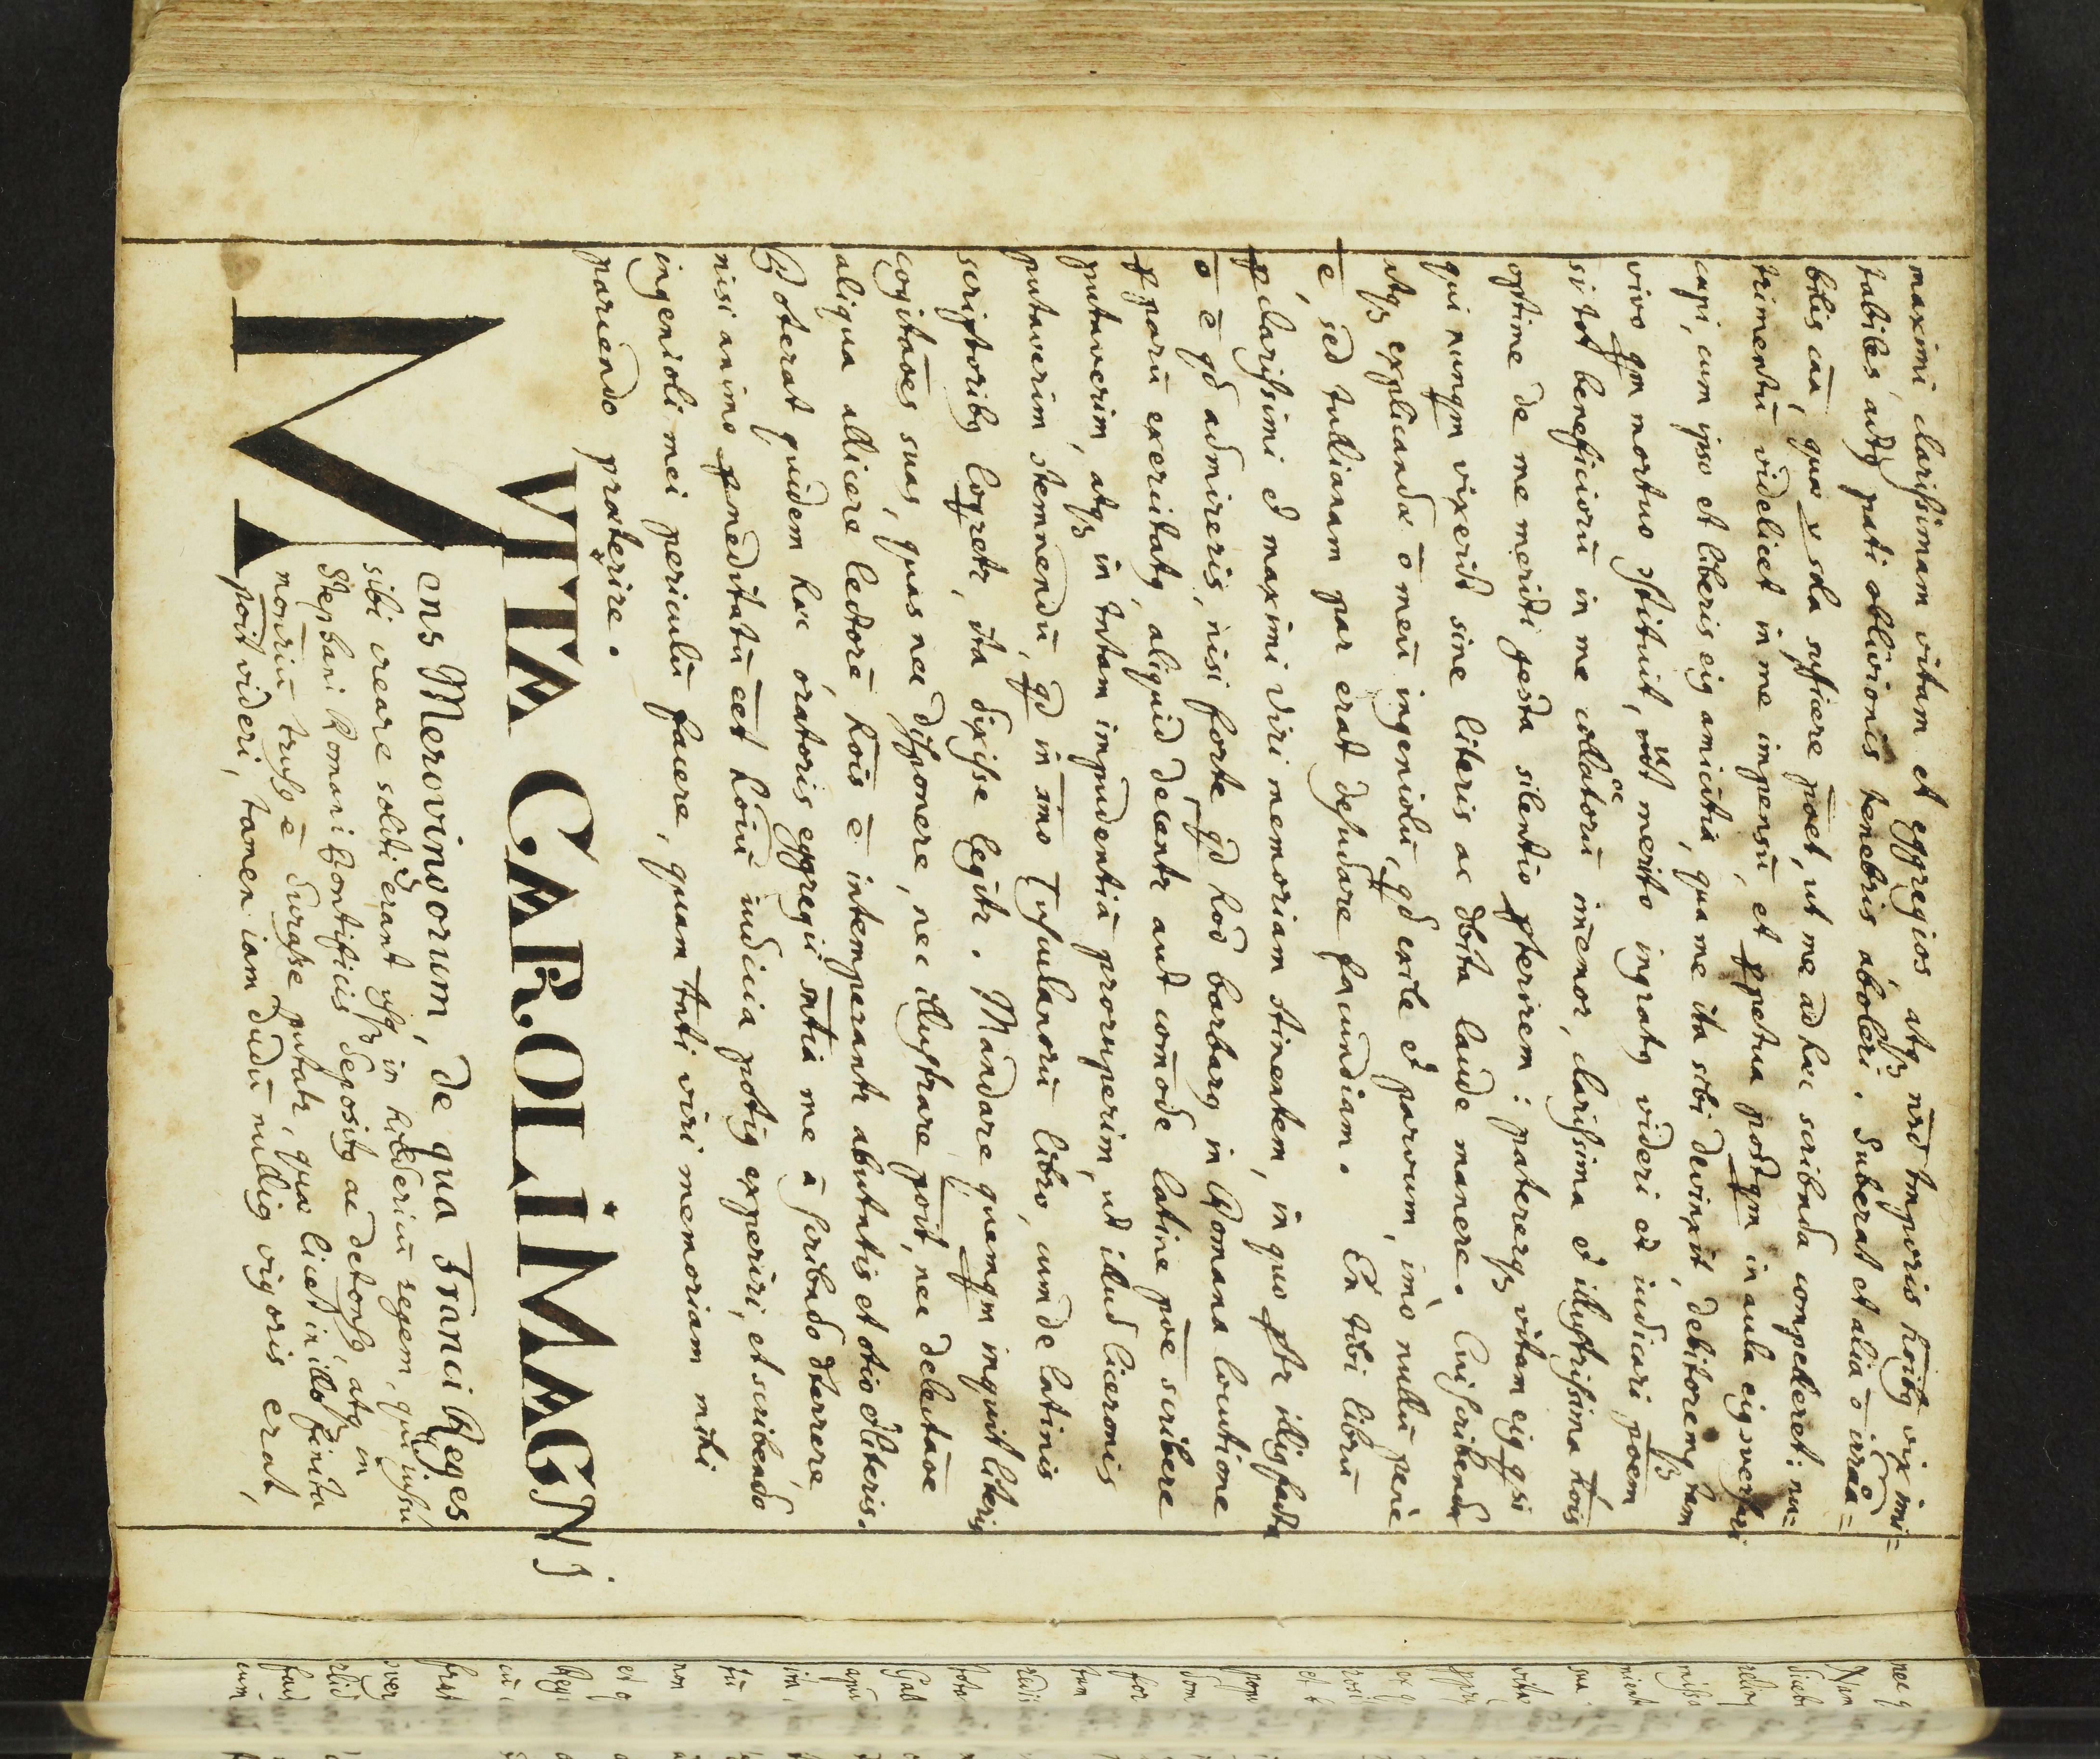 maximi clarissimam vitam et egregios atqꝫ nr̄d tmporis hōibꝰ vix imi=
tabiles actꝰ pati oblivionis tenebris aboleri. Suberat et alia ō irrāo=
bilis cāa, quae v sola sufficere pōet, ut me ad haec scribnda compelleret: nu=
trimentū videlicet in me impensū, et ꝑpetua postqm in aula eiꝰ versari
caepi, cum ipso et liberis eiꝰ amicitia, qua me ita sibi devinxit, debitoremqꝫ tam
vivo qm mortuo ꝯstituit, ut merito ingratꝰ videri et iudicari poem
si tot beneficiorū in me collatorū im̄enor, clarissima et illustrissima hōis
optime de me meriti gesta silentio pterirem: patererqꝫ vitam eiꝰ qsi
qui nunqm vixerit sine literis ac dbita laude manere. Cui scribenda
atqꝫ explicanda ō meū ingeniolū, qd exile et parvum, imò nullū penè
ē, sed tullianam par erat desudare facundiam. En tibi librū
pclarissimi et maximi viri memoriam ꝯtinentem, in quo ptr illiꝰ facta
ō ē qd admireris, nisi forte qd hoc barbarꝰ in Romana locutione
ꝑparū exercitatꝰ, aliquid decentr aut com̄ode latine pōe scribere
putaverim, atqꝫ in tntam impudentiā proruperim, ut illud Ciceronis
putaverim ꝯtemnendū, qd in ꝑmo Tusculanorū libro, cum de latinis
scriptoribꝰ loqretr, ita dixisse legitr. Mandare quemqm inquit literis
cogitāoes suas, quas nec disponere, nec illustrare poīt, nec delectāoe
aliqua allicere lectorē hoīs ē intemperantr abutntis et otio et literis.
Poterat quidem haec oratoris egregii sntia me à scribndo dterrere,
nisi animo pmeditatū eēt hoīnū iudicia potiꝰ experiri, et scribendo
ingenioli mei periculū facere, quam tnti viri memoriam mihi
parcendo praeterire.
VITA CAROLI MAGNI
Mens Merovinvorum, de qua Franci Reges
sibi creare soliti erant usqꝫ in hilderīcū regem, qui iussu
Stephani Romani Pontificis depositꝰ ac detonsꝰ, atqꝫ in
monr̄iū trusꝰ ē durasse putatr, quae licet in illo finita
poīt videri, tamen iam dudū nulliꝰ vigoris erat,